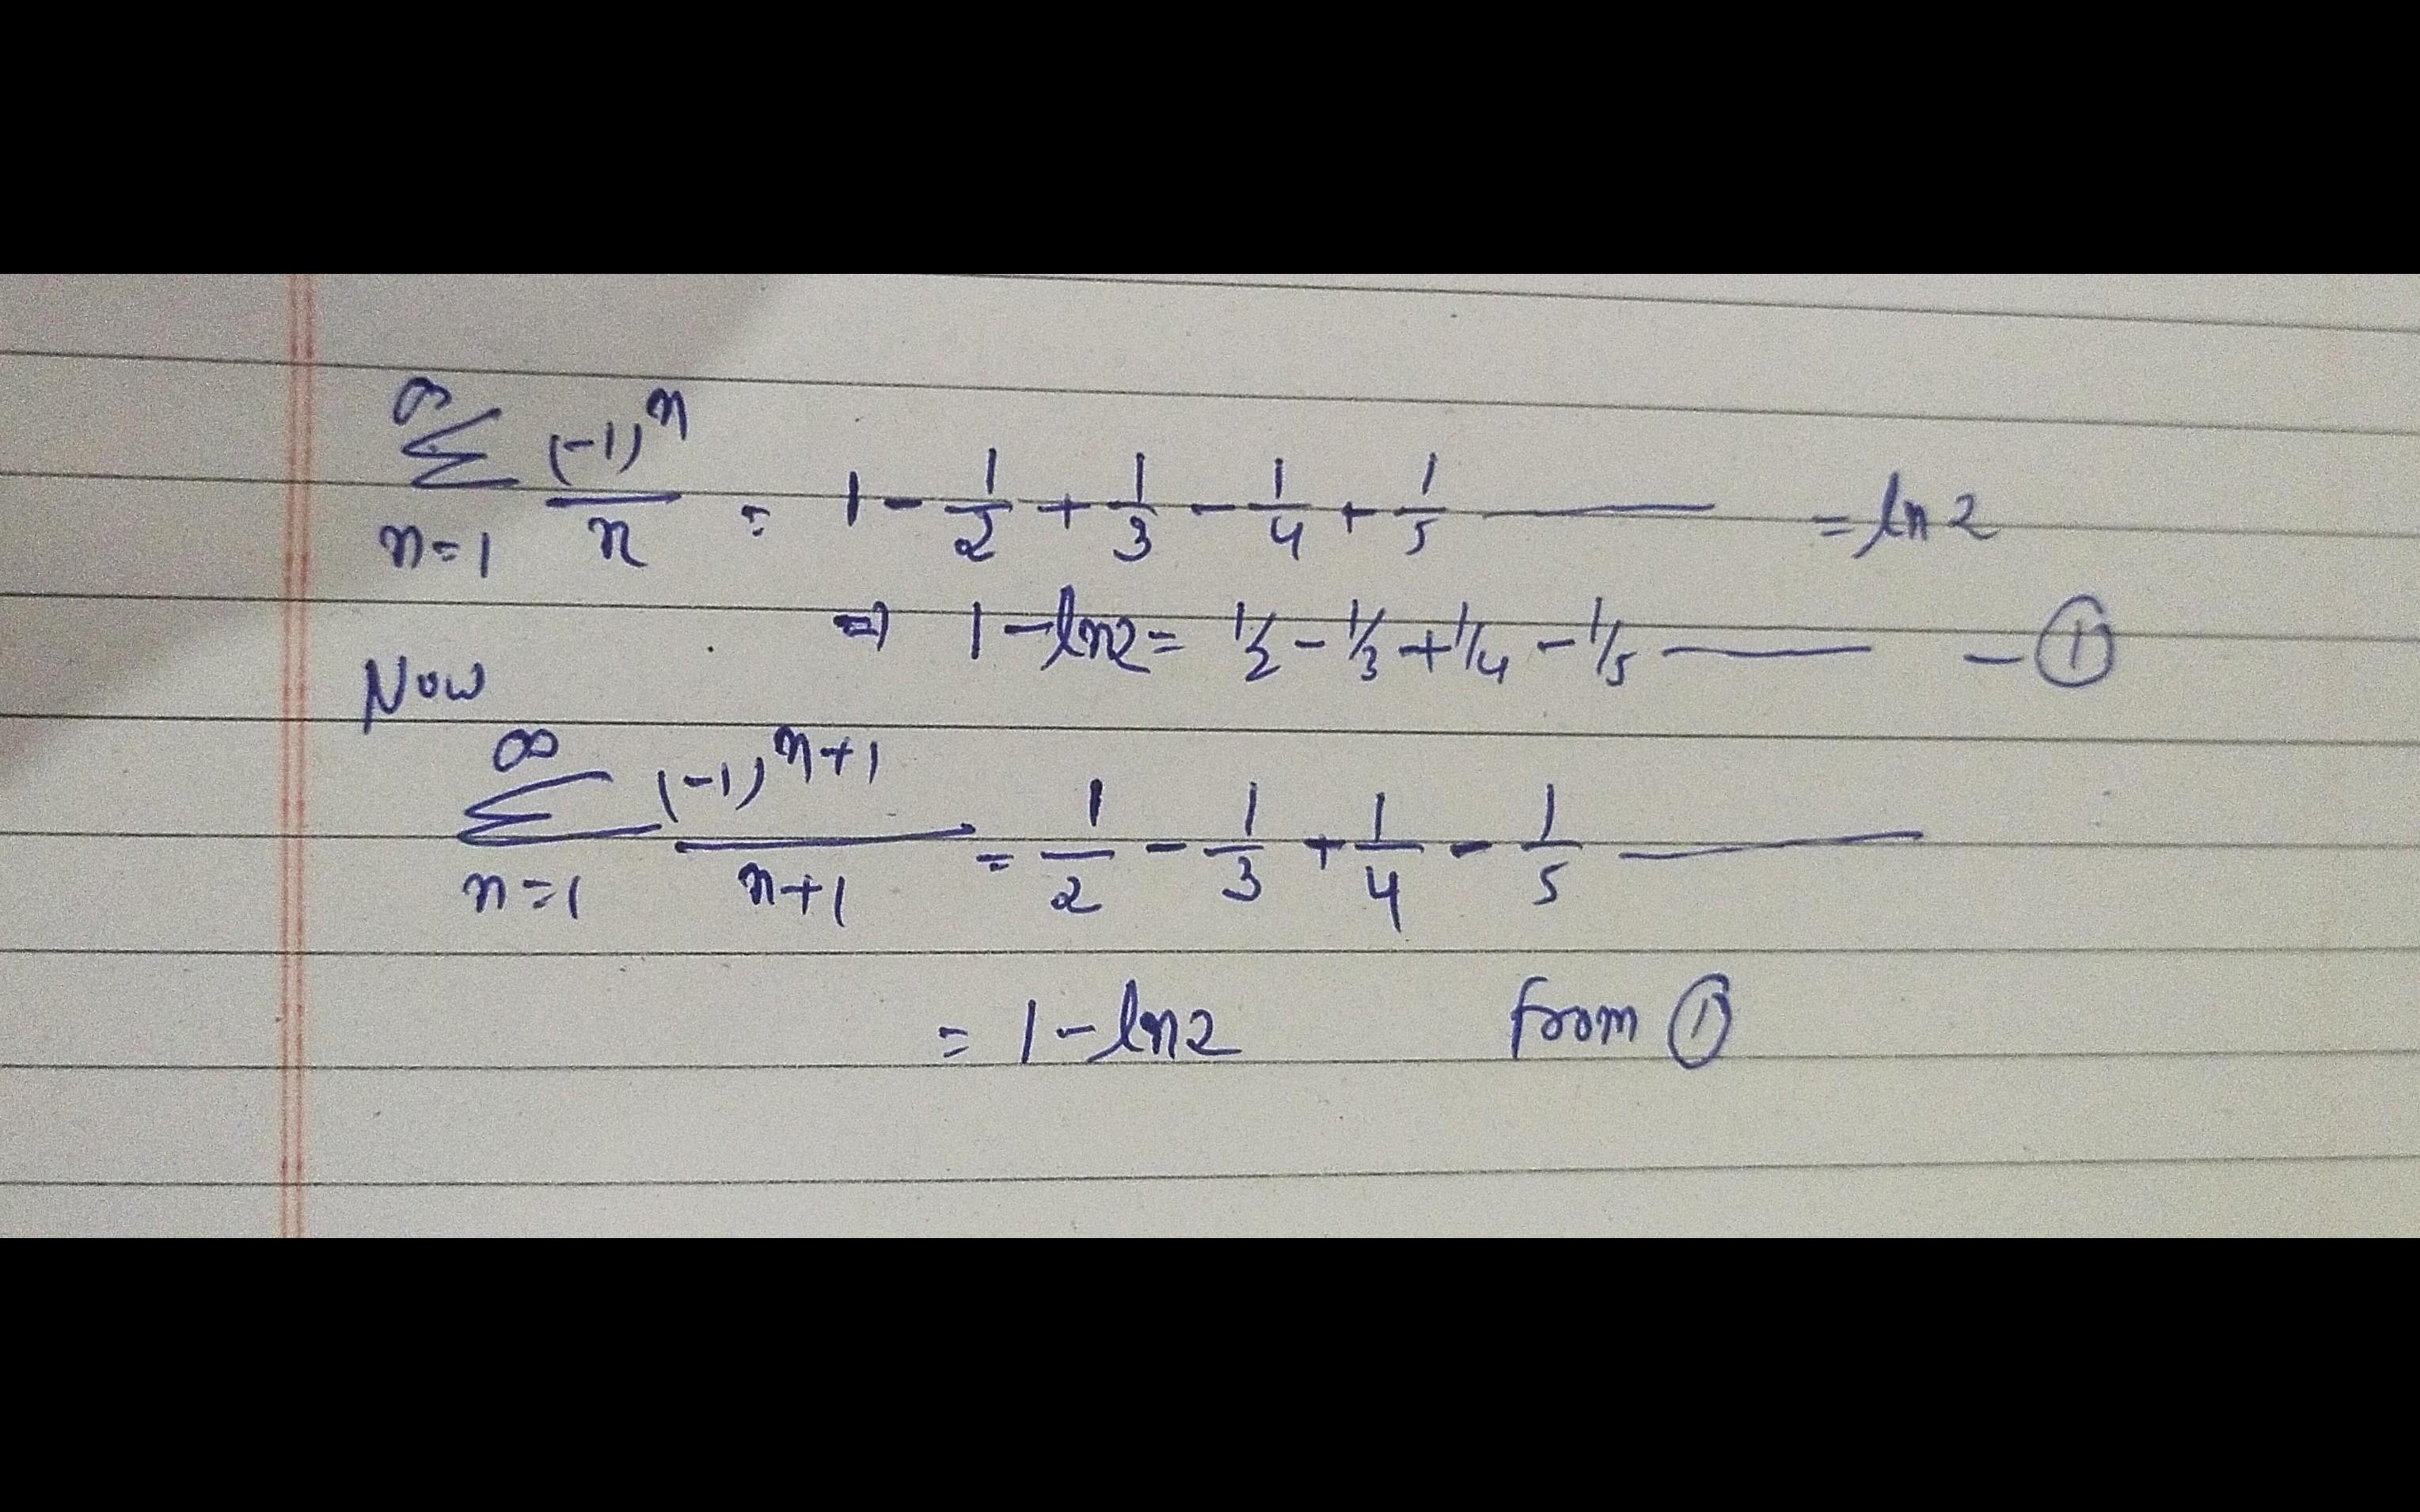 ∞∑n=1 (-1)^n/n = 1 - 1/2 + 1/3 - 1/4 + 1/5 ——— = ln 2
⇒ 1 - ln2 = 1/2 - 1/3 + 1/4 - 1/5 ——— — ①
Now
∞∑n=1 (-1)^n+1/n+1 = 1/2 - 1/3 + 1/4 - 1/5 ———
= 1 - ln2 from ①